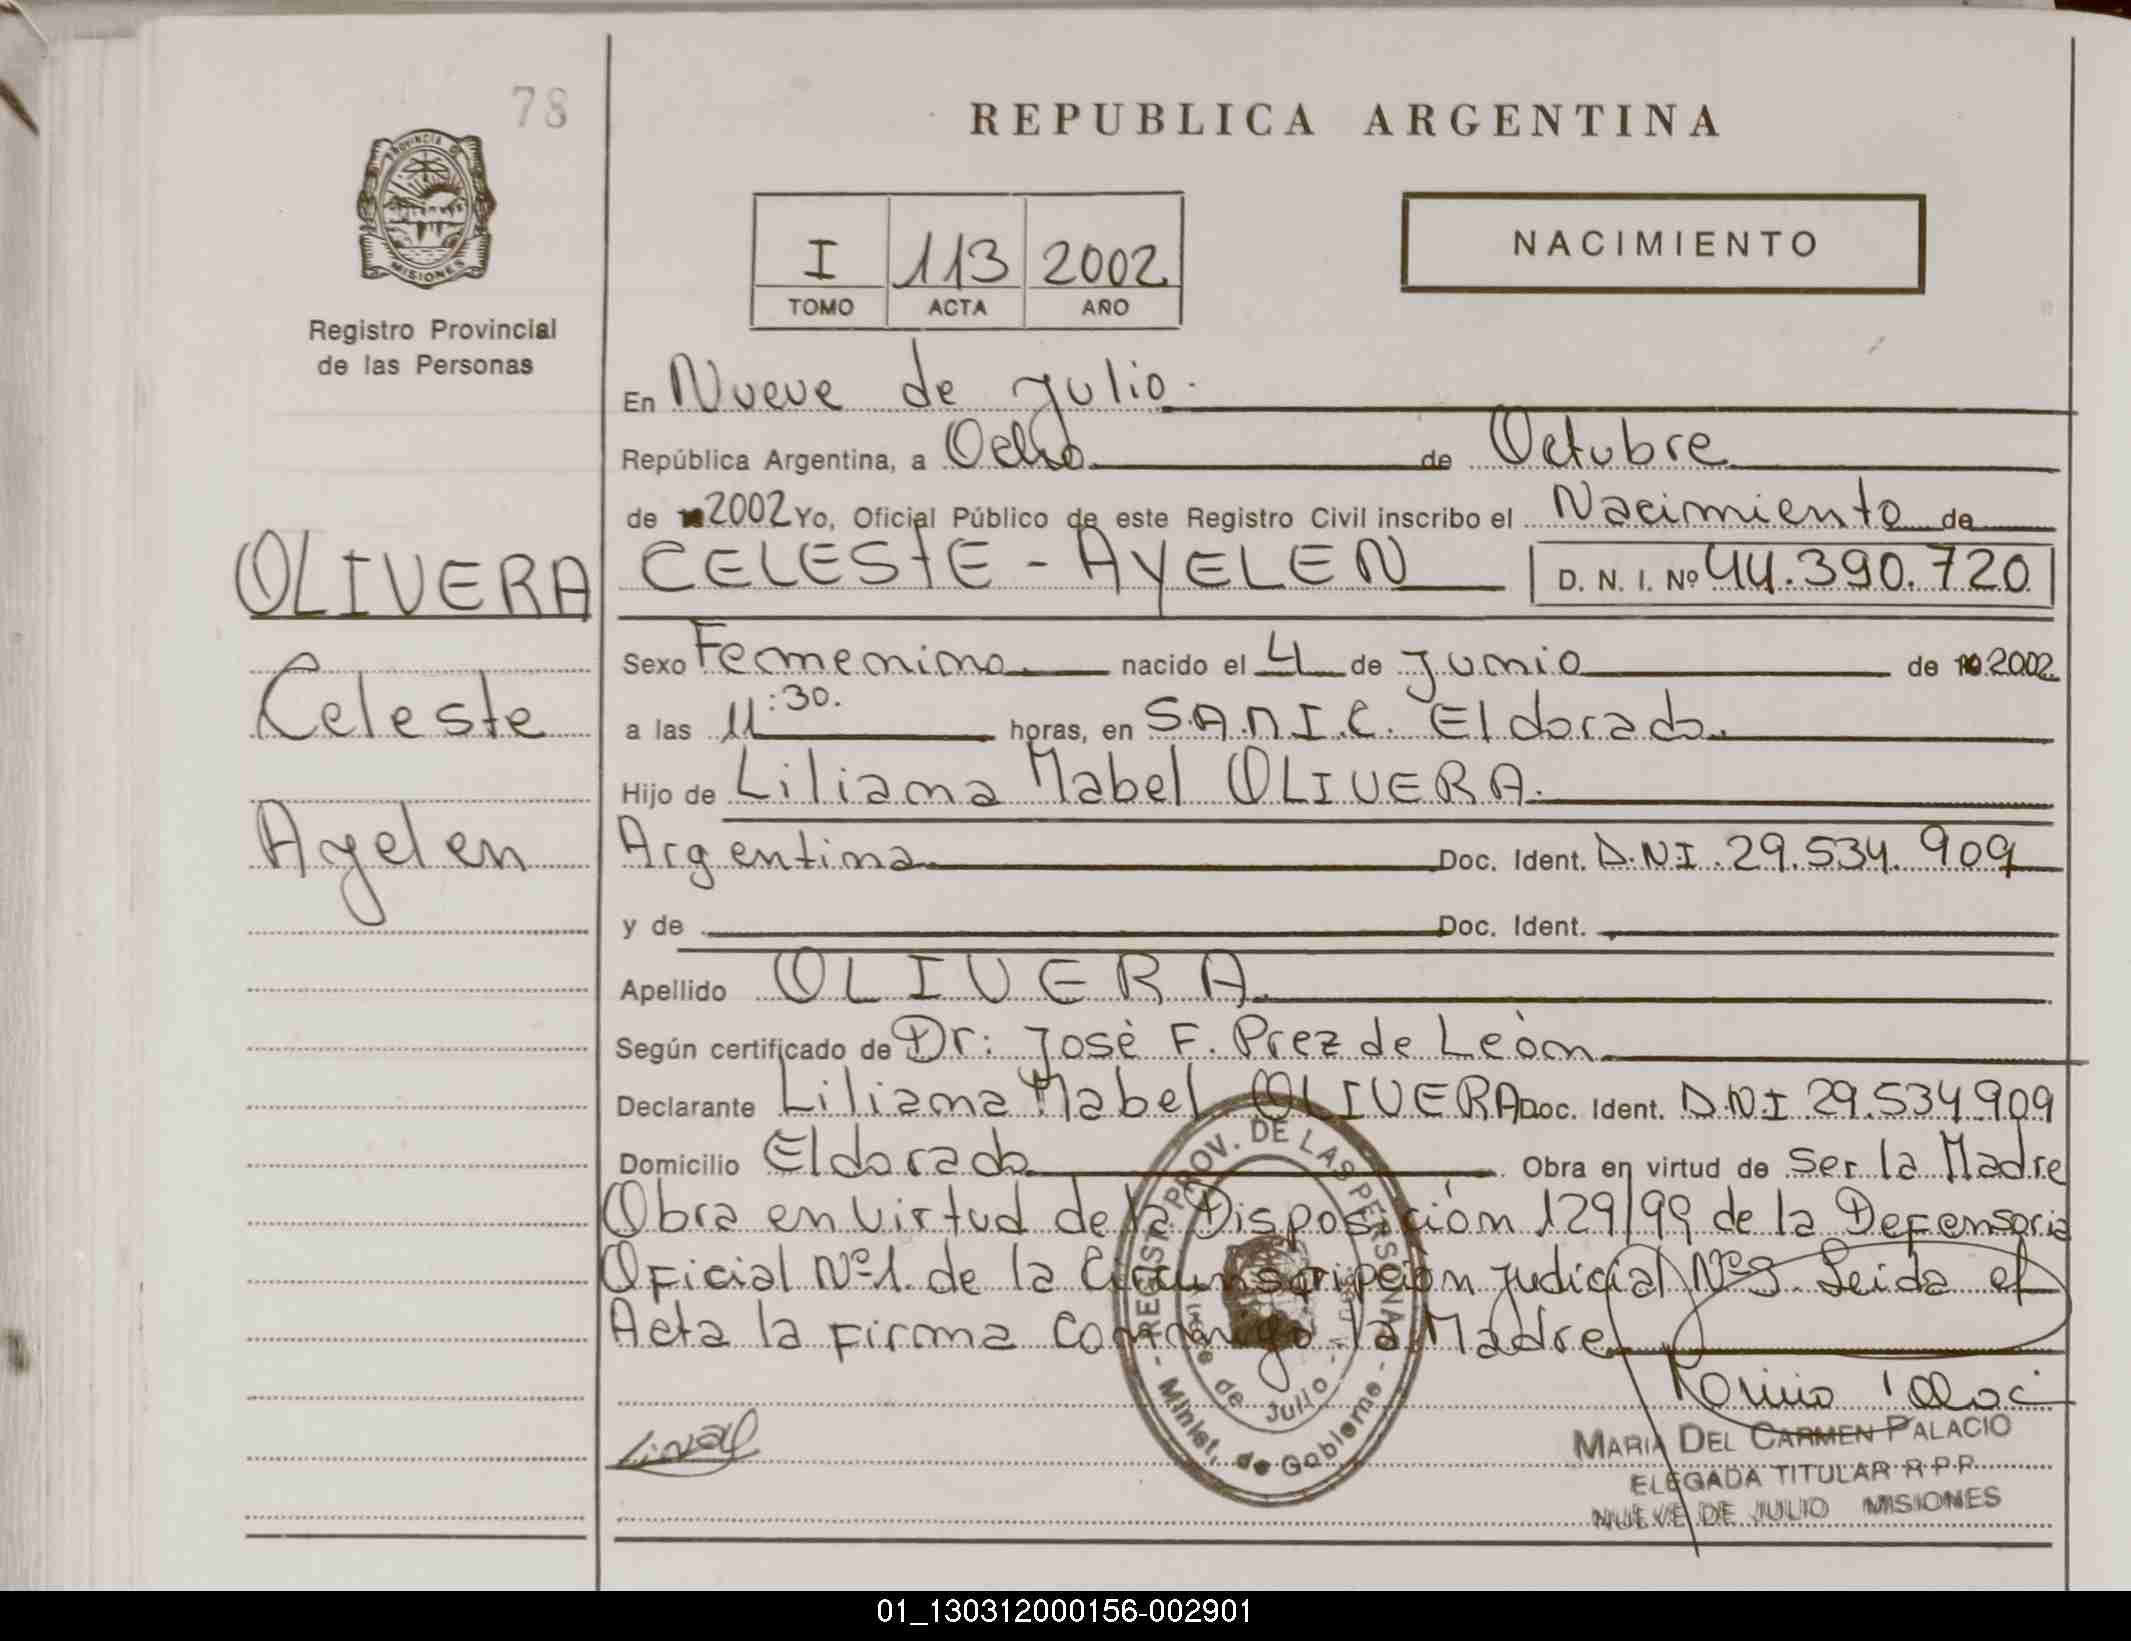 78
REPUBLICA ARGENTINA
PROVINCIA D
MISIONES
Registro Provincial
de las Personas
I 113 2002
TOMO ACTA AÑO
NACIMIENTO
En Nueve de Julio.
República Argentina, a Ocho de Octubre
de 2002 Yo, Oficial Público de este Registro Civil inscribo el Nacimiento de
OLIVERA CELESTE - AYELEN D. N. I. Nº 44.390.720
Sexo Femenino nacido el 4 de Junio de 2002
Celeste a las 11:30. horas, en S.A.M.I.C. Eldorado.
Hijo de Liliana Mabel OLIVERA.
Ayelen Argentina Doc. Ident. D.N.I. 29.534.909
y de Doc. Ident.
Apellido OLIVERA.
Según certificado de Dr: José F. Prez de León
Declarante Liliana Mabel OLIVERA Doc. Ident. D.N.I 29.534909
Domicilio Eldorado Obra en virtud de ser la Madre
Obra en Virtud de la Disposición 129/99 de la Defensoria
Oficial Nº1. de la Circunscripción Judicial Nº9. Leida el
Acta la Firma Conmigo la Madre
REGIST. PROV. DE LAS PERSONAS
de Julio
Minist. de Gobierno
MARIA DEL CARMEN PALACIO
ELEGADA TITULAR R.P.P.
NUEVE DE JULIO MISIONES
01_130312000156-002901